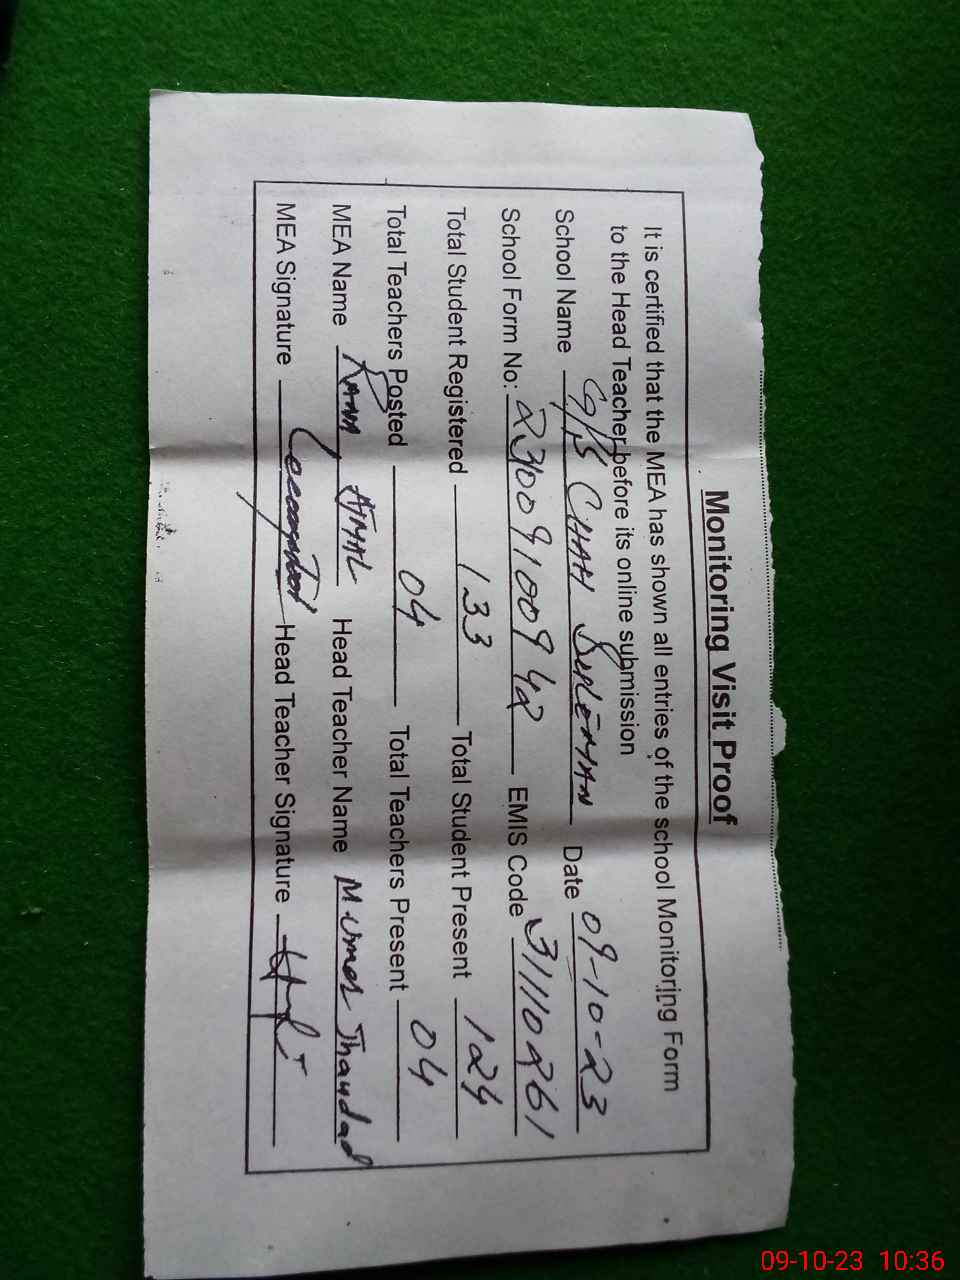 Monitoring Visit Proof
It is certified that the MEA has shown all entries of the school Monitoring Form
to the Head Teacher before its online submission
School Name G/PS CHAH SULEMAN Date 09-10-23
School Form No: 231009100942 EMIS Code 31110261
Total Student Registered 133 Total Student Present 124
Total Teachers Posted 04 Total Teachers Present 04
MEA Name RANA AJMAL Head Teacher Name M Umer
MEA Signature Head Teacher Signature
09-10-23 10:36